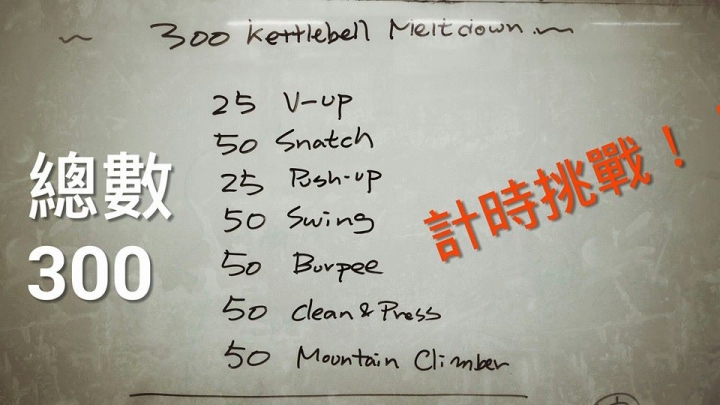 ~ 300 Kettlebell Meltdown ~
25 V-up
50 Snatch
25 Push-up
50 Swing
50 Burpee
50 Clean & Press
50 Mountain Climber
總數
300
計時挑戰！